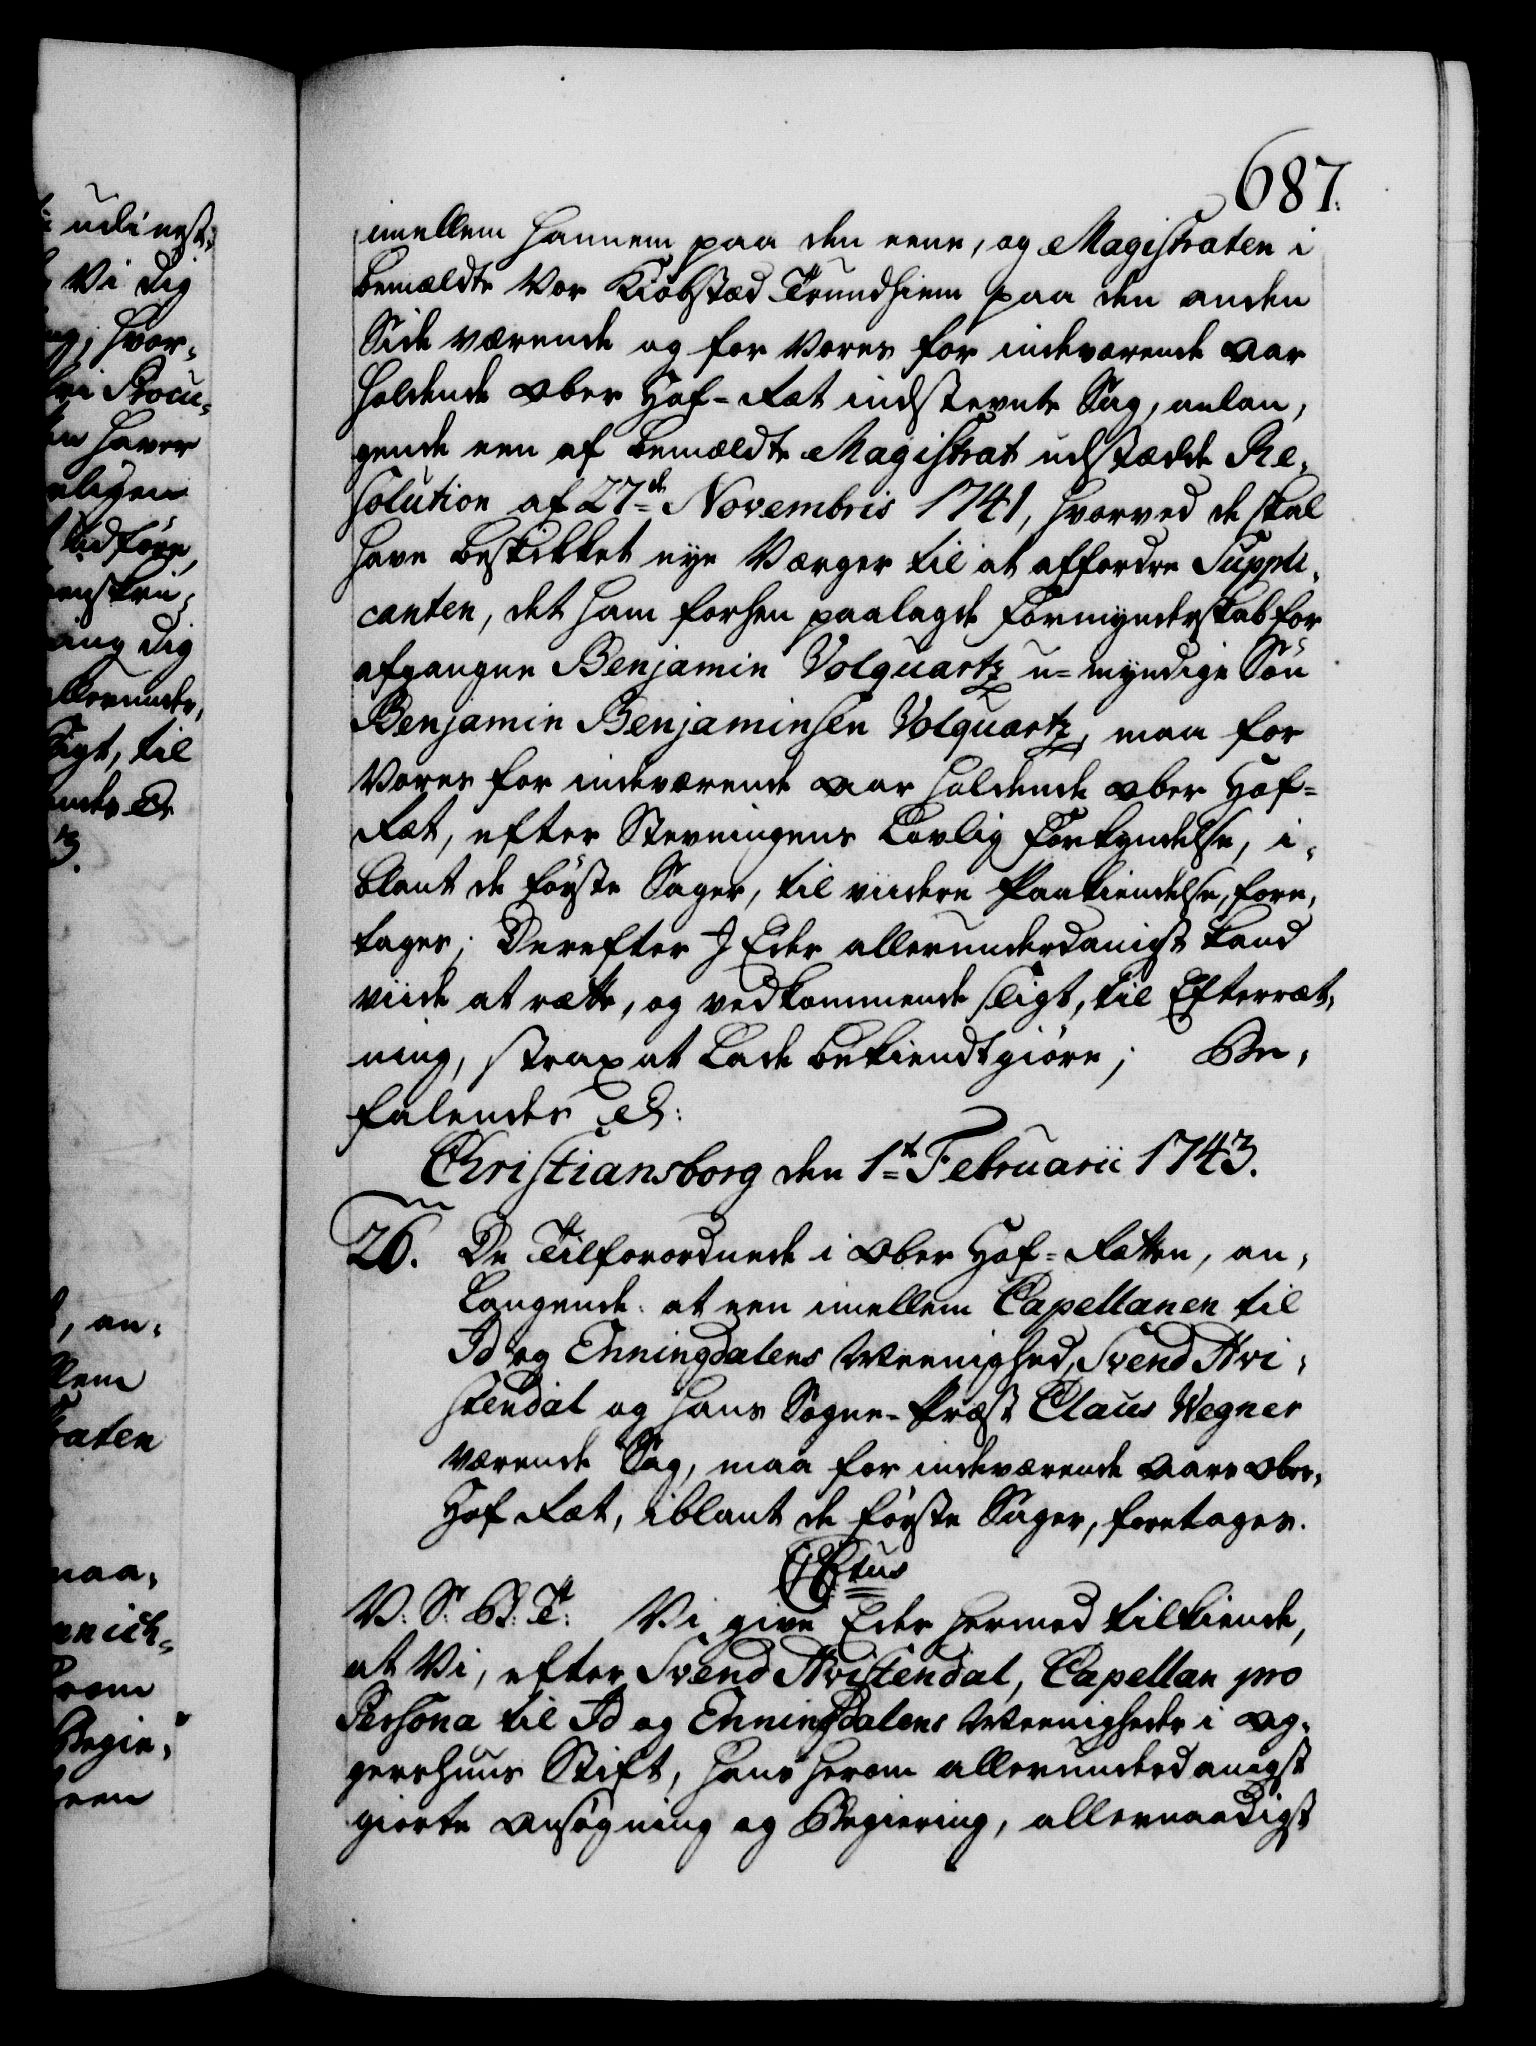 687.
imellem hannem paa den eene, og Magistraten i
bemældte Vor Kiøbstæd Trundhiem paa den anden
Side værende og for Vores for indeværende Aar
holdende Ober Hof-Ræt indstevnte Sag, anlan,
gende een af bemældte Magistrat udstædde Re,
solution af 27de Novembris 1741, hvorved de skal
have beskikket nye Værger til at affordre Suppli,
canten, det ham forhen paalagde Formynderskab for
afgangne Benjamin Volquartz u-myndige Søn
Benjamin Benjaminsen Volquartz, maa for
Vores for indeværende Aar holdende Ober Hof-
Ræt, efter Stevningens Lovlig Forkyndelse, i,
blant de første Sager, til viidere Paakiendelse, fore,
tages; Derefter I Eder allerunderdanigst kand
viide at rætte, og vedkommende sligt, til Efterræt,
ning, strax at Lade bekiendtgiøre; Be,
falendes etc:
Christiansborg den 1te Februarii 1743.
26. De Tilforordnede i Ober Hof-Rætten, an,
langende: at een imellem Capellanen til
Id og Enningdalens Meenighed, Svend Hvi,
stendal og hans Sogne-Præst Claus Wegner
værende Sag, maa for indeværende Aars Ober,
Hof Ræt, iblant de første Sager, foretages.
C 6tus
V: S: B: T: Vi give Eder hermed tilkiende,
at Vi, efter Svend Hvistendal, Capellan pro
Persona til Id og Enningdalens Meenigheder i Ag,
gershuus Stift, hans herom allerunderdanigst
giorte Ansøgning og Begiering, allernaadigst
udi nest,
Vi dig
hvor,
Procu,
haver
til